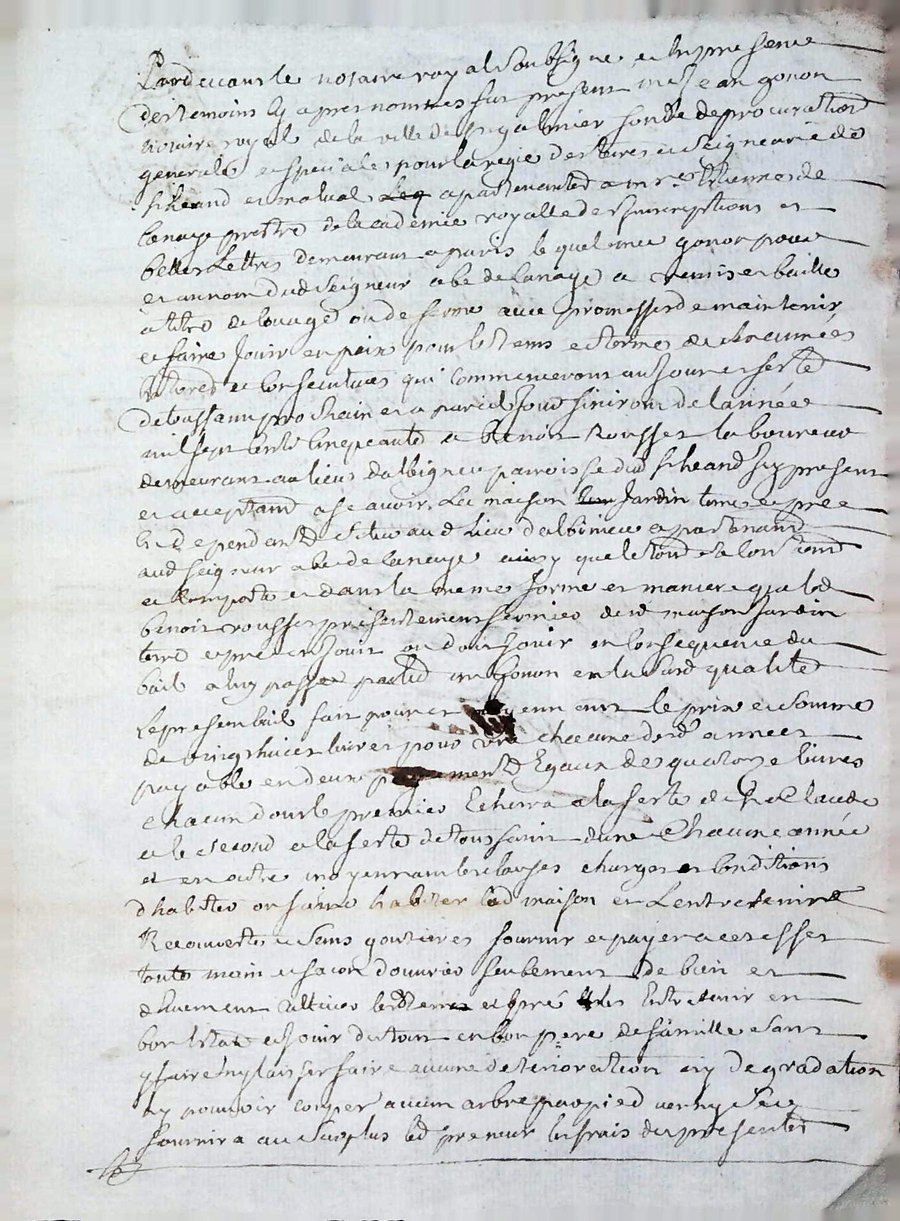 Pardevant le notaire royal soubsigné et en presence
des temoins cy apres nommes fut present me Jean gonon
notaire royal de la ville de st galmier fondé de procuration
generale et speciale pour la regie des terres et seigneurie de
st heand et malval apartenantes a mre de
lanage prestre de lacademie royalle des Inscriptions et
belles Lettres demeurant a paris le quel me gonon pour
et au nom dud seigneur abé de Canaye a remis et baille
a titre de louage ou de ferme avec promesse de maintenir
et faire Jouir en paix pour le tems et termes de années
et consecutives qui commenceront au Jour et feste
de toussaint prochain et a pareil Jour finiront de lannée
mil sept cents cinquante a benoit Rousset laboureur
demeurant au lieu dalbigneu parroisse dud st heand Icy present
et acceptant a scavoir La maison Jardin terre et pré
en dependants situes aud Lieu dalbinieu apartenant
aud seigneur abé de Canaye ainsy que le tout sa
et comporte et dans la meme forme et maniere que led
benoit rousset presentement fermier desd maison Jardin
terre et pré en Jouit ou doit Jouir en consequence du
bail a luy passé par led me Gonon en lad qualité
Le present bail fait pour et moyennant le prix et somme
de vingt huict livres pour chacune desd années
payable en deux payements Egaux de quatorze livres
chacun dont le premier Echerra a la feste de st Claude
et le second a la feste de toussaint dune Chacune année
et en outre moyennant les clauses charges et conditions
dhabiter ou faire habiter lad maison et Lentretenir
Recouverte et sans goutieres fournir et payer a ces effet
toute main et facon douvrier seulement de bien et
duement cultiver les terres et pré les Entretenir en
bon Etat et Jouir du tout en bon pere de famille sans
y faire ny laisser faire aucune deterioration ny degradation
ny pouvoir couper aucun arbre par pied verd ny sec
fournira au surplus led preneur les frais des presentes